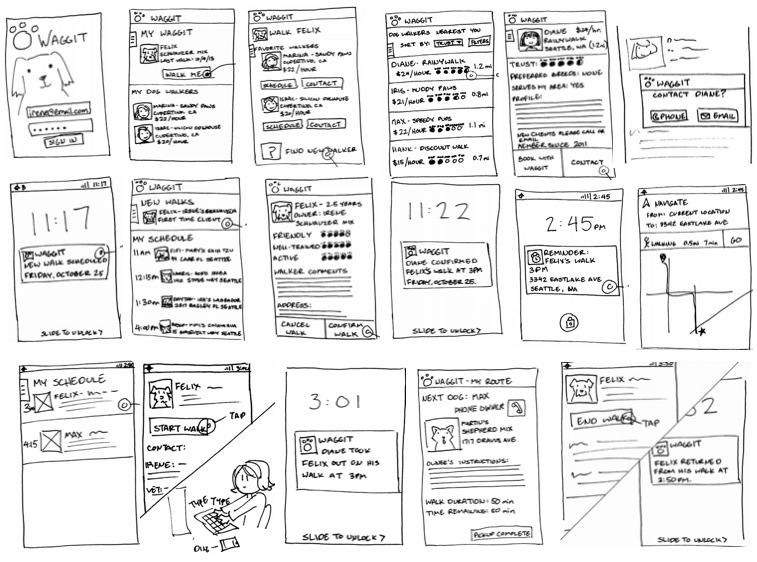 WAGGIT
irene@email.com
SIGN IN
WAGGIT
MY WAGGIT
FELIX
SCHNAUZER MIX
WALK ME
MY DOG WALKERS
MARINA - SANDY PAWS
CUPERTINO, CA
$22/HOUR
CUPERTINO, CA
$20/HOUR
WAGGIT
WALK FELIX
FAVORITE WALKERS
MARINA - SANDY PAWS
CUPERTINO, CA
$22/HOUR
SCHEDULE CONTACT
CUPERTINO, CA
$20/HOUR
SCHEDULE CONTACT
? FIND NEW WALKER
WAGGIT
DOG WALKERS NEAREST YOU
SORT BY: TRUST FILTERS
DIANE - RAINYWALK
$20/HOUR 1.2 mi
IRIS - MUDDY PAWS
$21/HOUR 0.8 mi
MAX - SPEEDY PUPS
$22/HOUR 1.1 mi
HANK - DISCOUNT WALK
$15/HOUR 0.7 mi
WAGGIT
DIANE $20/hr.
RAINYWALK
SEATTLE, WA (1.2mi)
TRUST:
PREFERRED BREEDS: NONE
SERVES MY AREA: YES
PROFILE:
NEW CLIENTS PLEASE CALL OR
EMAIL
MEMBER SINCE 2011
BOOK WITH
WAGGIT
CONTACT
WAGGIT
CONTACT DIANE?
PHONE EMAIL
11:17
11:17
WAGGIT
NEW WALK SCHEDULED
FRIDAY, OCTOBER 25
SLIDE TO UNLOCK>
WAGGIT
NEW WALKS
FIRST TIME CLIENT
MY SCHEDULE
11AM
12:15PM
11:30PM
4:00PM
WAGGIT
FELIX - 2.5 YEARS
OWNER: IRENE
SCHNAUZER MIX
FRIENDLY
WELL-TRAINED
ACTIVE
WALKER COMMENTS
ADDRESS:
CANCEL
WALK
CONFIRM
WALK
11:22
WAGGIT
DIANE CONFIRMED
FELIX'S WALK AT 3PM
FRIDAY, OCTOBER 25.
SLIDE TO UNLOCK>
2:45
2:45 PM
REMINDER:
FELIX'S WALK
3PM
3342 EASTLAKE AVE
SEATTLE, WA
2:45
NAVIGATE
FROM: CURRENT LOCATION
TO: 3342 EASTLAKE AVE
WALKING 0.5mi 7min GO
MY SCHEDULE
FELIX
4:15 MAX
FELIX
START WALK TAP
CONTACT:
IRENE:
VET:
TYPE TYPE
DIN
3:01
WAGGIT
DIANE TOOK
FELIX OUT ON HIS
WALK AT 3PM
SLIDE TO UNLOCK>
WAGGIT - MY ROUTE
NEXT DOG: MAX
PHONE OWNER
SHEPHERD MIX
OWNER'S INSTRUCTIONS:
WALK DURATION: 50 min
TIME REMAINING: 50 min
PICKUP COMPLETE
FELIX
END WALK TAP
2
WAGGIT
FELIX RETURNED
FROM HIS WALK AT
3:50PM.
SLIDE TO UNLOCK>